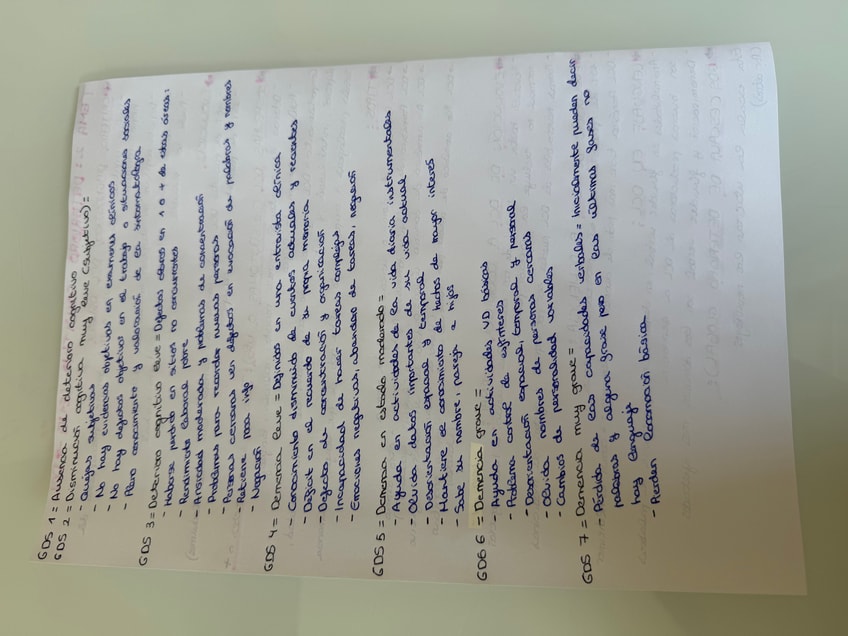 GDS 1 = Ausencia de deterioro cognitivo
GDS 2 = Disminución cognitiva muy leve (subjetivo) =
- Quejas subjetivas
- No hay evidencias objetivas en exámenes clínicos
- No hay defectos objetivos en el trabajo o situaciones sociales
- Pleno conocimiento y valoración de la sintomatología
GDS 3 = Deterioro cognitivo leve = Defectos obvios en 1 o + de estas áreas:
- Haberse perdido en sitios no concurrentes
- Rendimiento laboral pobre
- Ansiedad moderada y problemas de concentración
- Problemas para recordar nuevas personas
- Personas cercanas ven defectos en evocación de palabras y nombres
- Retiene poca info
- Negación
GDS 4 = Demencia leve = Definidos en una entrevista clínica
- Conocimiento disminuido de eventos actuales y recientes
- Déficit en el recuerdo de su propia memoria
- Defecto de concentración y organización
- Incapacidad de hacer tareas complejas
- Emociones negativas, abandono de tareas, negación
GDS 5 = Demencia en estado moderado =
- Ayuda en actividades de la vida diaria instrumentales
- Olvida datos importantes de su vida actual
- Desorientación espacial y temporal
- Mantiene el conocimiento de hechos de mayor interés
- Sabe su nombre, pareja e hijos
GDS 6 = Demencia grave =
- Ayuda en actividades VD básicas
- Problema control de esfínteres
- Desorientación espacial, temporal y personal
- Olvida nombres de personas cercanas
- Cambios de personalidad variables
GDS 7 = Demencia muy grave =
- Pérdida de las capacidades verbales = Inicialmente pueden decir
palabras y alguna frase pero en las últimas fases no
hay lenguaje
- Pierden locomoción básica